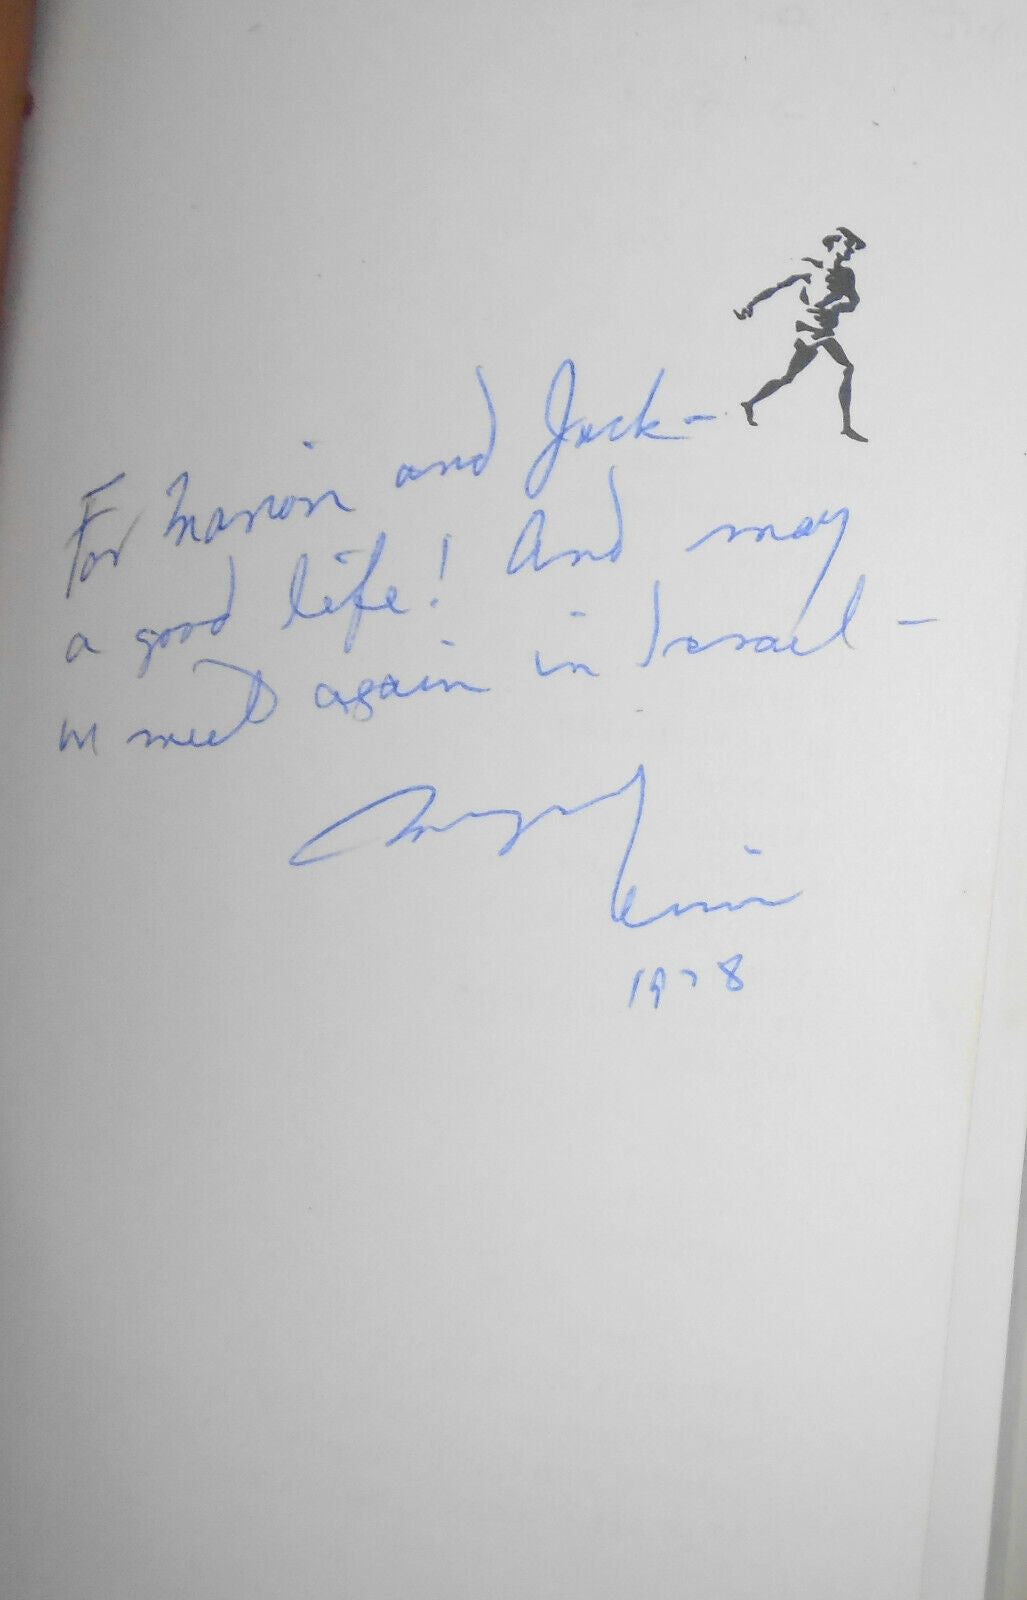 For Marion and Jack—
a good life! And may
we meet again in Israel—
Meyer Levin
1978